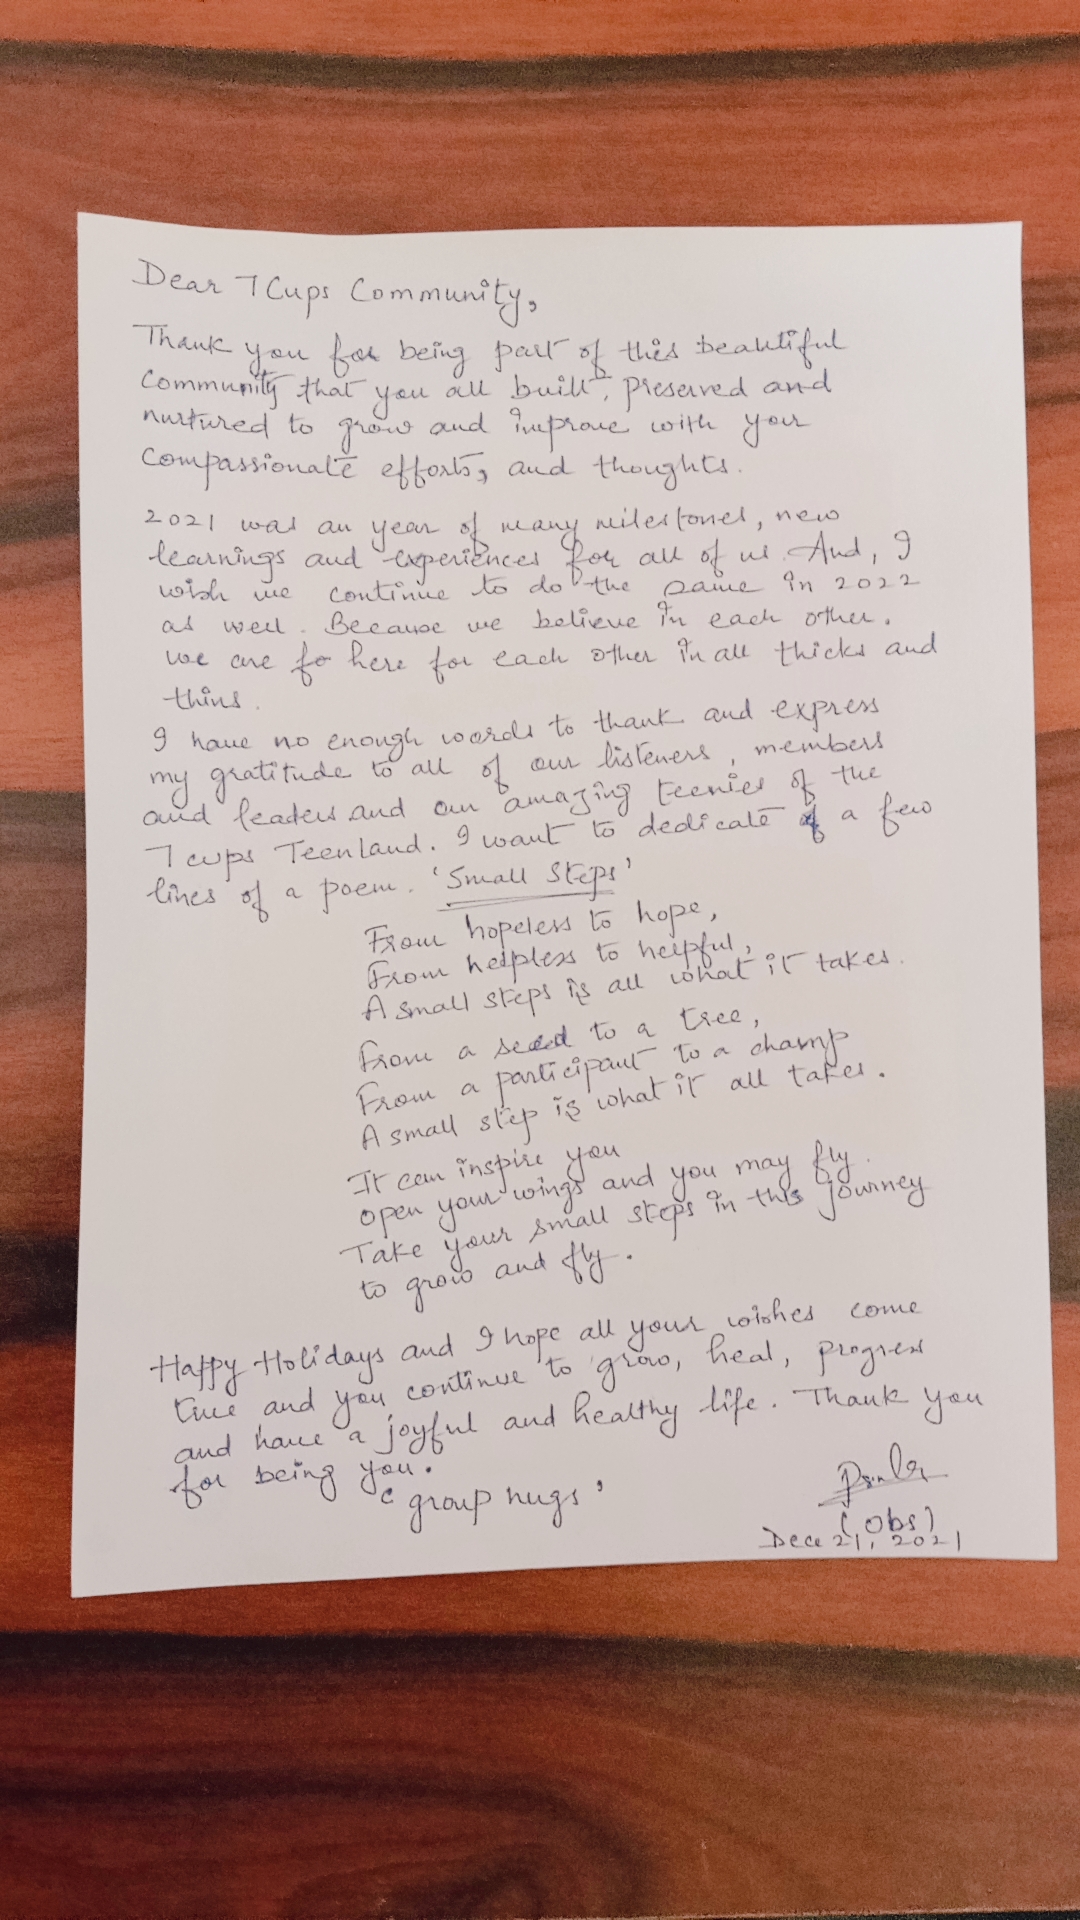 Dear 7 Cups Community,
Thank you for being part of this beautiful
Community that you all built, preserved and
nurtured to grow and improve with your
Compassionate efforts, and thoughts.
2021 was an year of many milestones, new
learnings and experiences for all of us. And, I
wish we continue to do the same in 2022
as well. Because we believe in each other.
we are fo here for each other in all thicks and
thins.
I have no enough words to thank and express
my gratitude to all of our listeners, members
and leaders and our amazing teenies of the
7 cups Teenland. I want to dedicate a few
lines of a poem. 'Small Steps'
From hopeless to hope,
From helpless to helpful,
A small steps is all what it takes.
From a seed to a tree,
From a participant to a champ
A small step is what it all takes.
It can inspire you
open your wings and you may fly.
Take your small steps in this journey
to grow and fly.
Happy Holidays and I hope all your wishes come
true and you continue to grow, heal, progress
and have a joyful and healthy life. Thank you
for being you.
'group hugs'
(Obs)
Dece 21, 2021